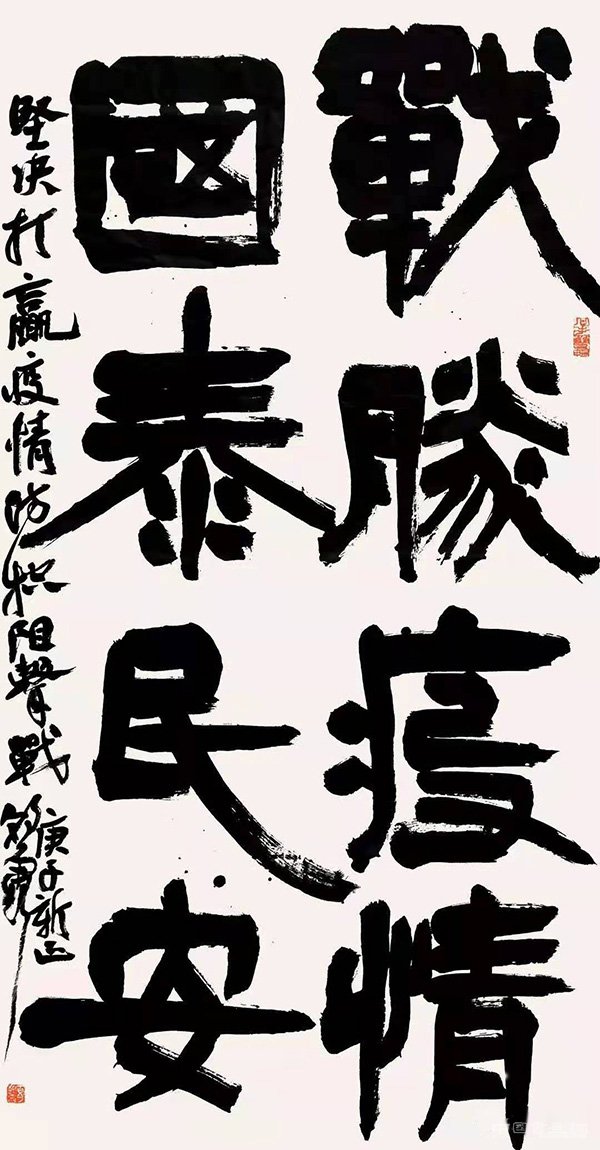 戰勝疫情
國泰民安
堅决打贏疫情防控阻擊戰
庚子新正